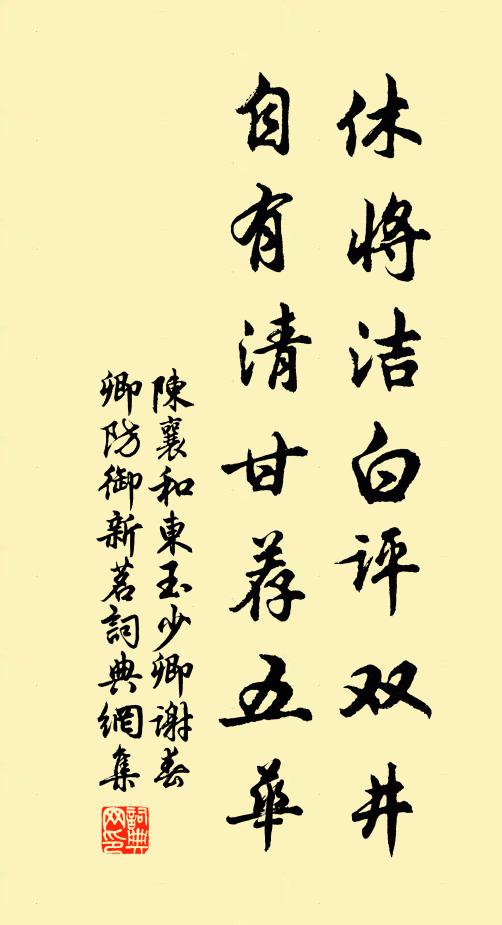 休将洁白评双井
自有清甘荐五华
陳襄和東玉少卿謝春
卿防御新茗詞典網集